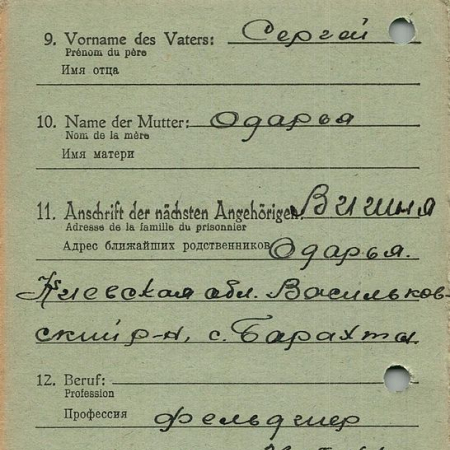 9. Vorname des Vaters: Сергей
Prénom du père
Имя отца
10. Name der Mutter: Одарья
Nom de la mère
Имя матери
11. Anschrift der nächsten Angehörigen: Вишня
Adresse de la famille du prisonnier
Адрес ближайших родственников Одарья.
Киевская обл. Васильков-
ский р-н, с. Барахты
12. Beruf:
Profession
Профессия фельдшер